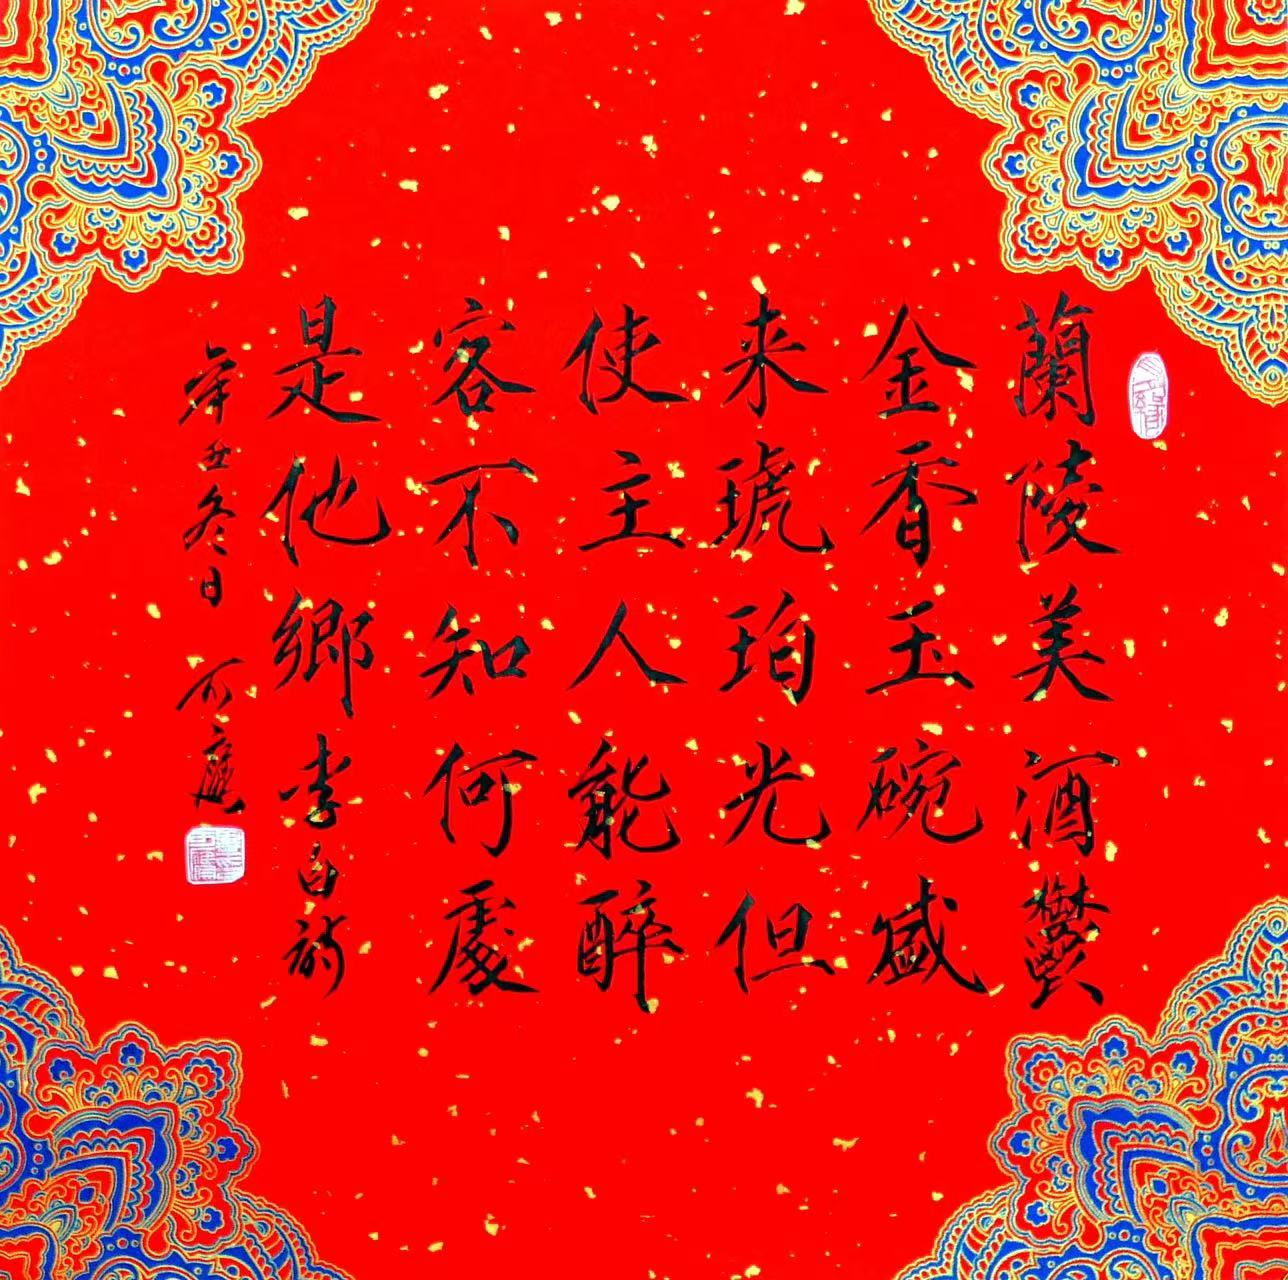 蘭陵美酒鬱
金香玉碗盛
来琥珀光但
使主人能醉
客不知何處
是他鄉 李白詩
辛丑冬日